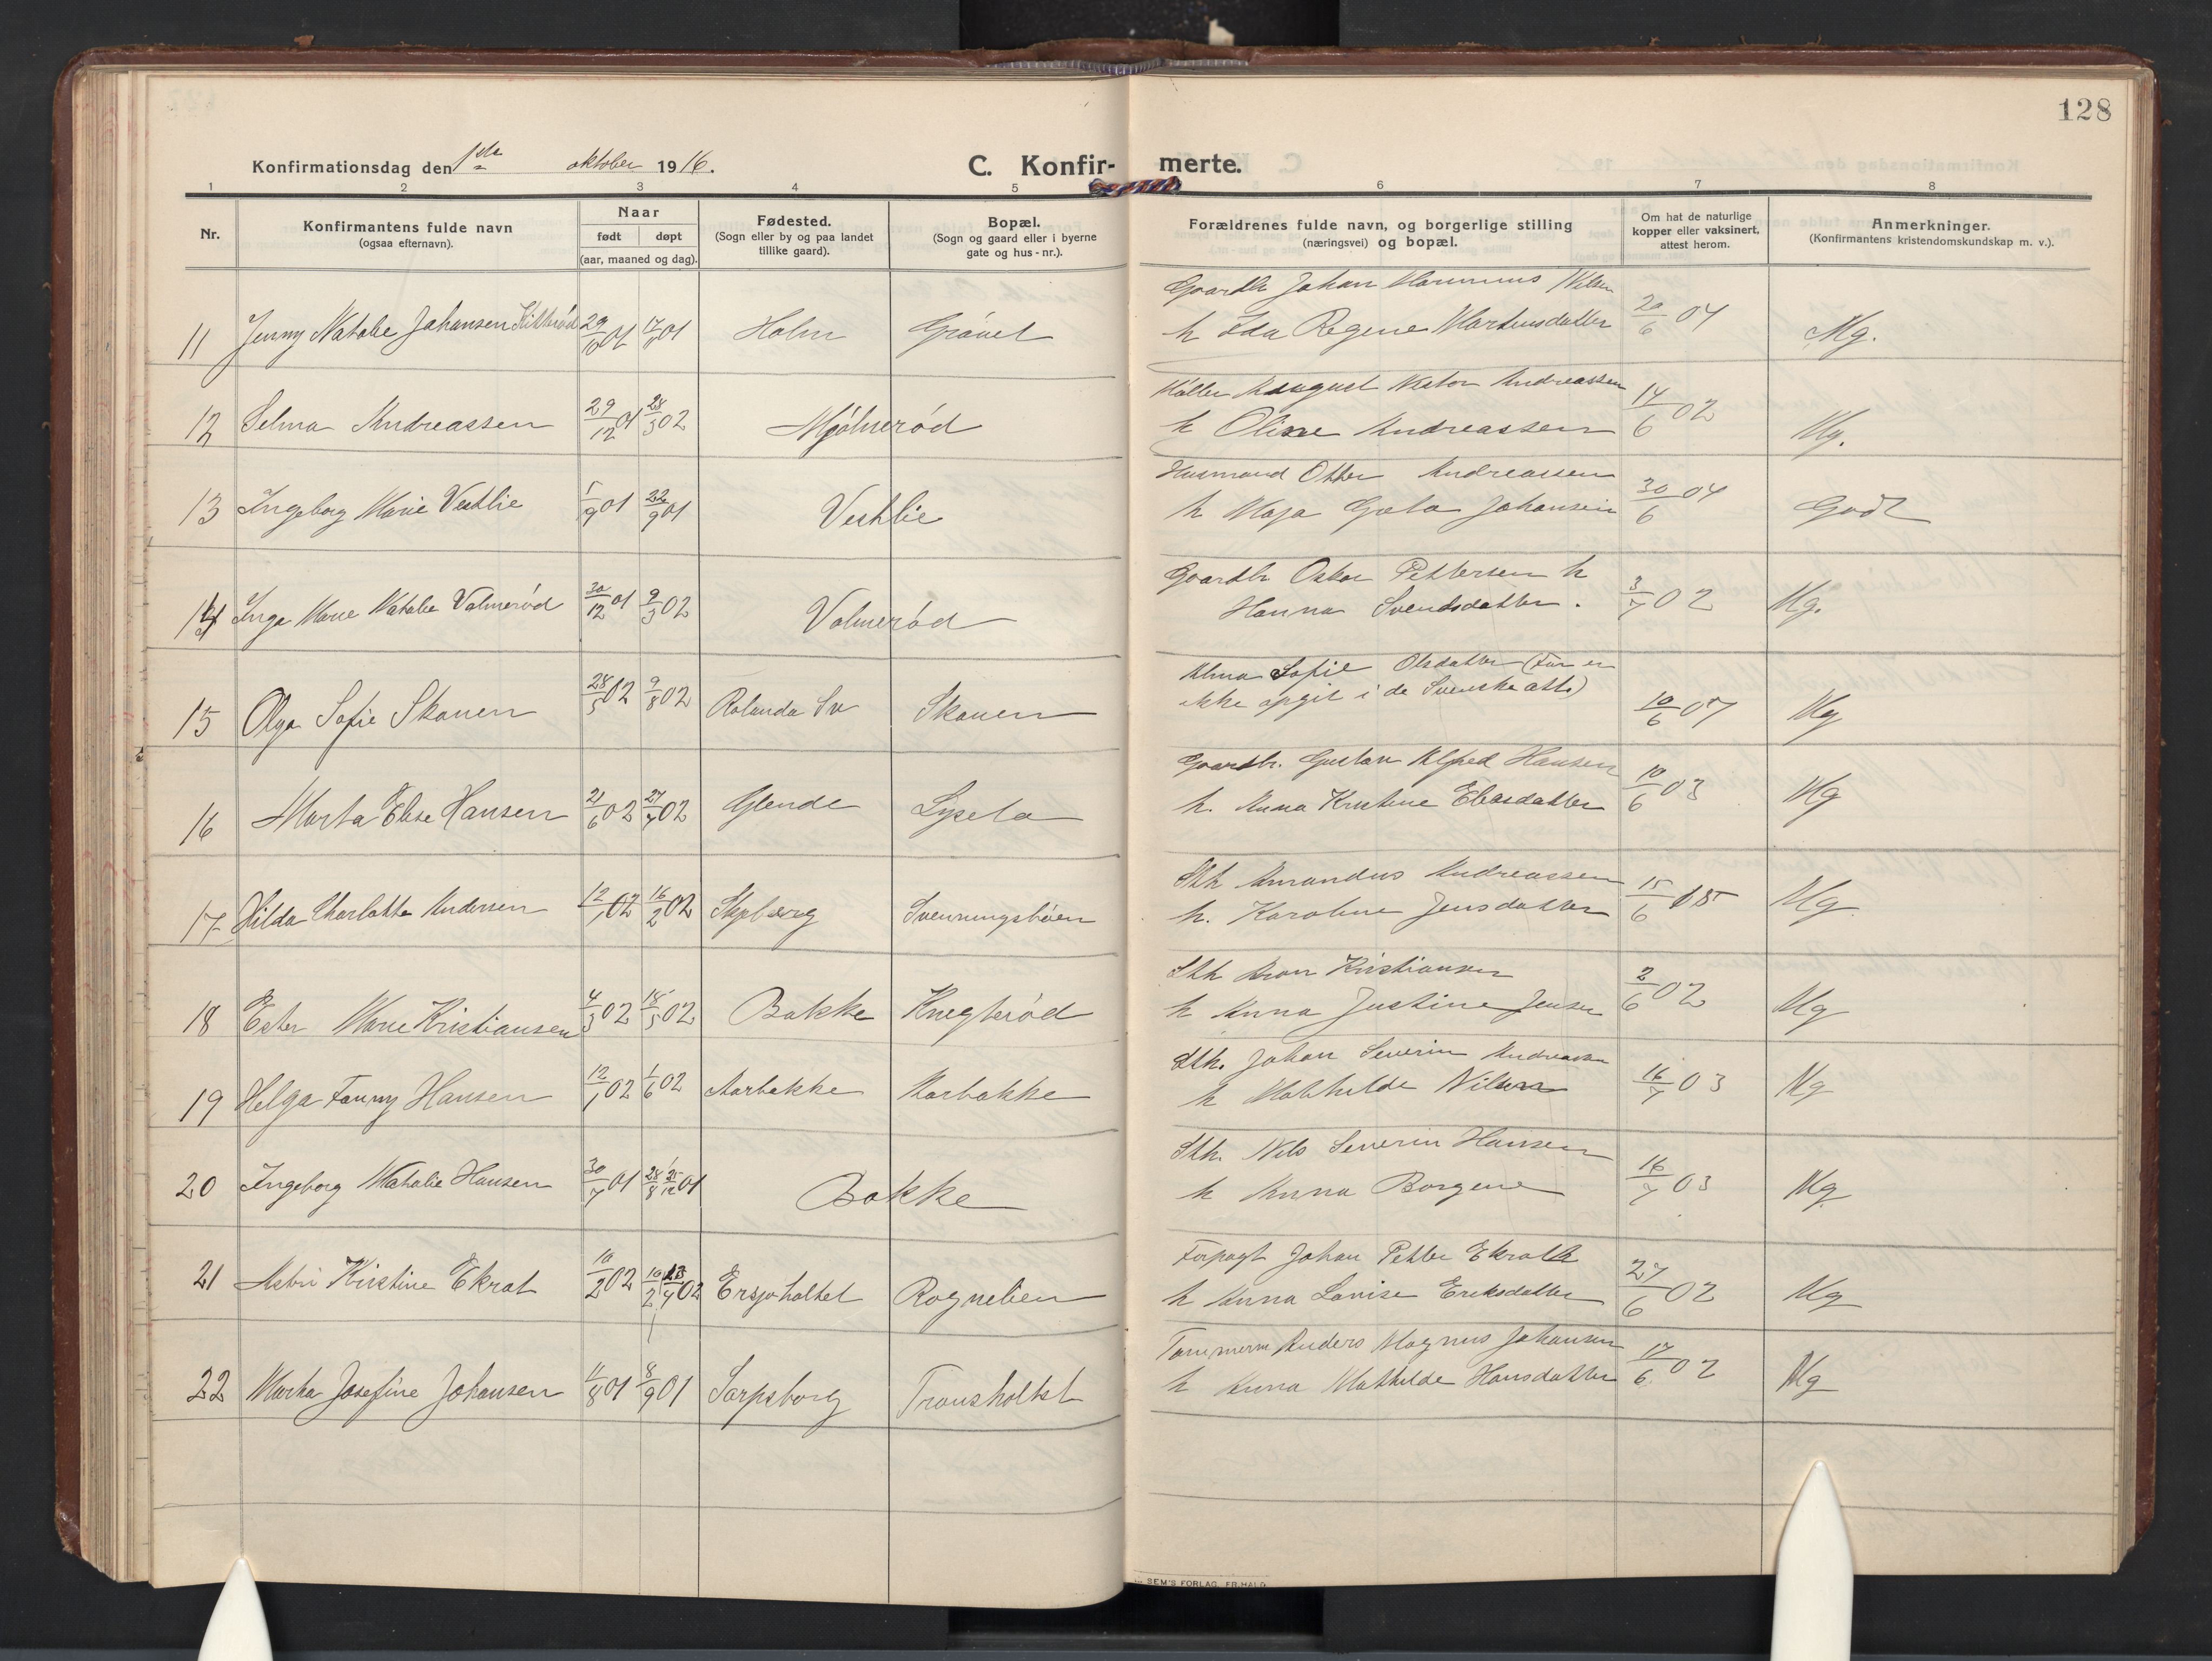 128
Konfirmationsdag den 1ste oktober 1916.
C. Konfir- merte.
1 2 3 4 5 6 7 8
Nr.
Konfirmantens fulde navn
(ogsaa efternavn).
Naar
født døpt
(aar, maaned og dag).
Fødested.
(Sogn eller by og paa landet
tillike gaard).
Bopæl.
(Sogn og gaard eller i byerne
gate og hus-nr.).
Forældrenes fulde navn, og borgerlige stilling
(næringsvei) og bopæl.
Om hat de naturlige
kopper eller vaksinert,
attest herom.
Anmerkninger.
(Konfirmantens kristendomskundskap m. v.).
Gaardbr Johan Nilsen
11 Jenny Natalie Johansen 01 01 Holm h Ida Regene Martinsdatter 20/6 04 Mg.
August Andreassen
12 Selma Andreassen 29/12 01 28/3 02 Mjølnerød h Oline Andreassen 14/6 02 Mg.
Husmand Otter Andreassen
13 Ingeborg Marie Vestlie 1/9 01 22/9 01 Vestlie h Maja Johansen 30/6 04 Godt
Gaardbr Oskar Pettersen h
14 Inga Marie Natalie Volmerød 30/12 01 9/3 02 Volmerød Hanna Svendsdatter. 3/7 02 Mg.
Alma Sofie Olsdatter (Far er
ikke opgit i de Svenske att.)
15 Olga Sofie Skauen 28/5 02 9/8 02 Skauen 10/6 07 Mg
Gaardbr. Gustav Alfred Hansen
16 Marta Elise Hansen 21/6 02 27/7 02 Glende Lyseto h. Anna Kristine Eliasdatter 10/6 03 Mg
Sth Amandus Andreassen
17 Hilda Charlotte Andersen 12/1 02 16/2 02 Skjeberg Svenningsbøen h. Karoline Jensdatter 15/6 Mg
Sth Aron Kristiansen
18 Ester Marie Kristiansen 4/3 02 18/5 02 Bakke Knegterød h Anna Justine Jensen 2/6 02 Mg
Sth. Johan Severin
19 Helga Fanny Hansen 12/1 02 1/6 02 Aarbakke Aarbakke h Mathilde Nilsen 16/7 03 Mg
Sth. Nils Severin Hansen
20 Ingeborg Mathalie Hansen 30/7 01 28/8 25/12 01 Bakke h Anna Borgene 16/7 03 Mg
Forpagt Johan Petter Ekrath
21 Astri Kristine Ekrat 10/2 02 02 Ersjøholtet Rognelien h Anna Lovise Eriksdatter 27/6 02 Mg
Tømmerm Anders Magnus Johansen
22 Marta Josefine Johansen 4/8 01 8/9 01 Sarpsborg Transholtet h Anna Mathilde Hansdatter 17/6 02 Mg
SEM'S FORLAG, FR.HALD